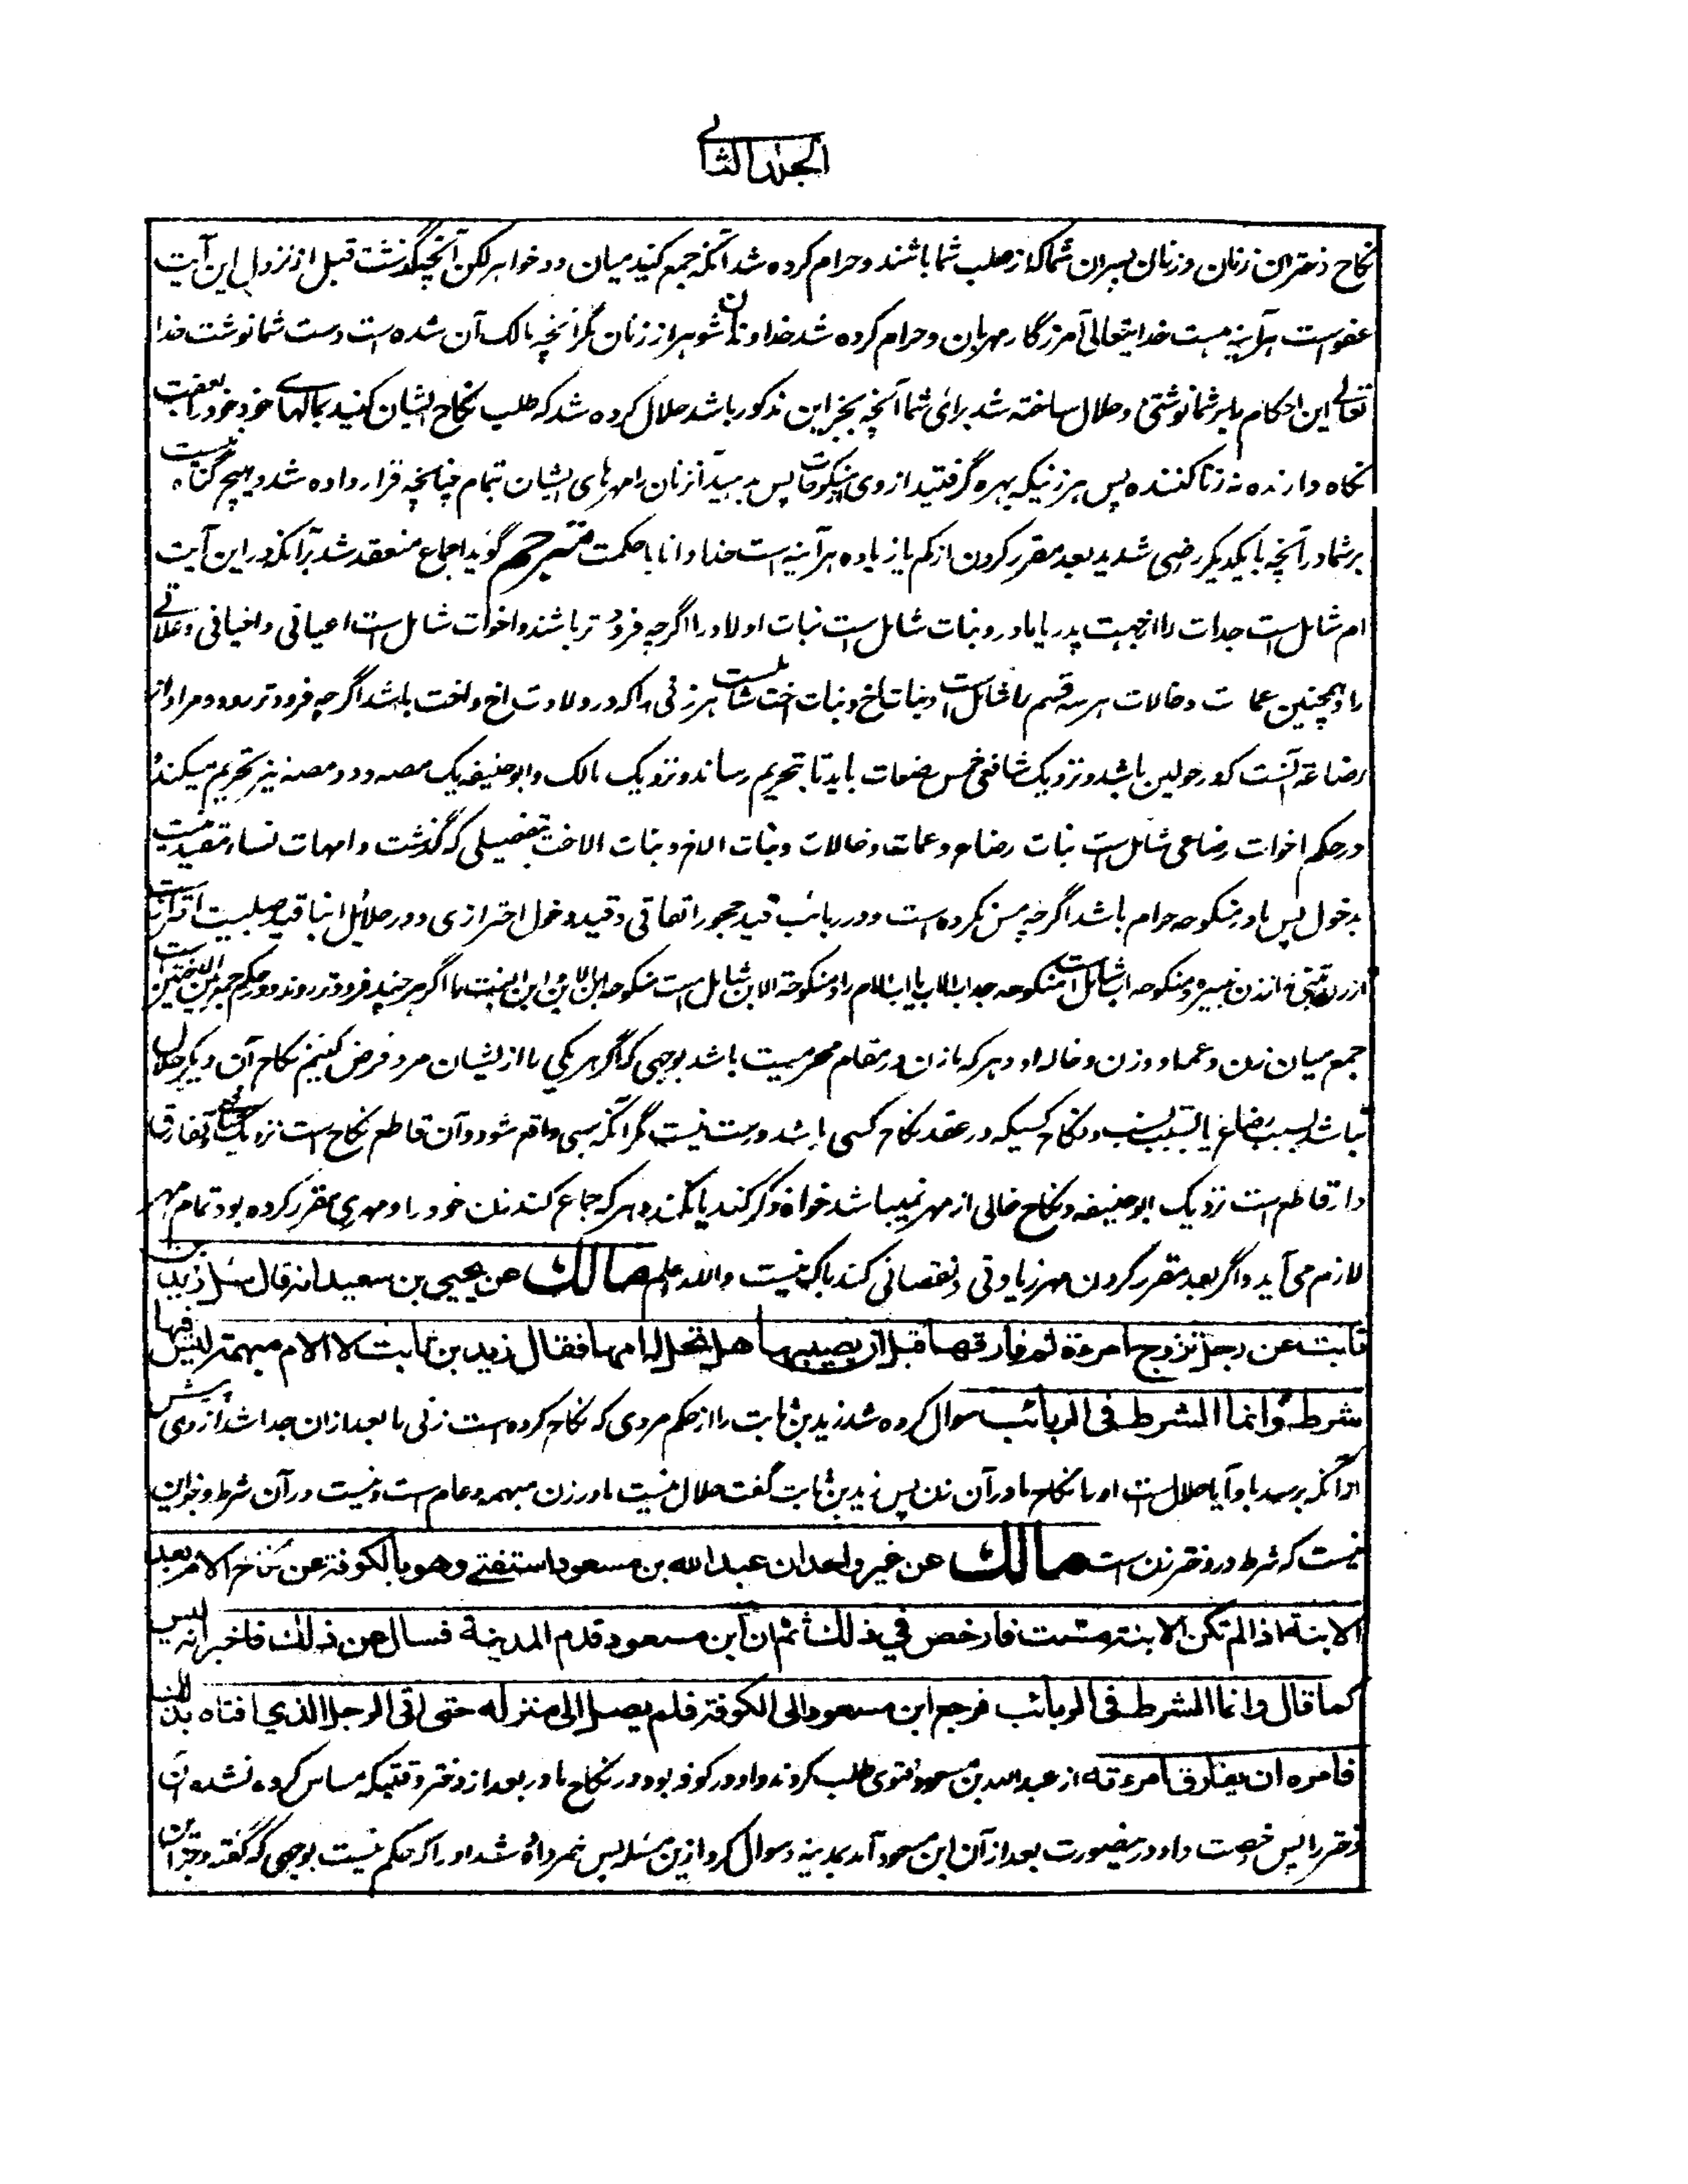 الجلد الثانے
نکاح دختران زنان و زنان پسران شما که از صلب شما باشند و حرام کرده شد آنکه جمع کنید میان دو خواهر لکن آنچه گذشت قبل از نزول این آیت
عفو است هرآئینه هست خدایتعالی آمرزگار مهربان و حرام کرده شد خداوندان شوهر از زنان مگر آنچه مالک آن شده است دست شما نوشت خدا
تعالے این احکام بر شما نوشتنی و حلال ساخته شد برای شما آنچه بجز این مذکور باشد حلال کرده شد که طلب نکاح ایشان کنید بمالهاے خود خود را بعفت
نگاه دارنده نه زنا کننده پس هر زنیکه بهره گرفتید از وی از منکوحات پس بدهید آنزنان را مهرهای ایشان تمام چنانچه قرار داده شد و هیچ گناه نیست
بر شما در آنچه با یکدیگر راضی شدید بعد مقرر کردن از کم یا زیاده هرآئینه است خدا دانا با حکمت مترجم گوید اجماع منعقد شد بر آنکه در این آیت
ام شامل است جدات را از جهت پدر یا مادر و بنات شامل است بنات اولاد را اگرچه فرود تر باشند و اخوات شامل است اعیانی و اخیافی و علاتے
را و همچنین عمات و خالات هر سه قسم را شامل است و بنات اخ و بنات اخت شامل است هر زنی را که در ولادت اخ و اخت باشد اگرچه فرود تر بود و مراد از
رضاعة آنست که در حولین باشد و نزدیک شافعی خمس رضعات باید تا بتحریم رساند و نزدیک مالک و ابوحنیفه یک مصه و دو مصه نیز تحریم میکند و
در حکم اخوات رضاعی شامل است بنات رضاع و عمات و خالات و بنات الاخ و بنات الاخت بتفصیلی که گذشت و امهات نساء مقید نیست
بدخول پس مادر منکوحه حرام باشد اگرچه مس نکرده است و در ربائب قید حجور اتفاقی و قید دخول احترازی و در حلائل ابنا قید صلبیت احتراز است
از زن متبنی نه از زن نبیره و منکوحه اب شامل است منکوحه جد اب الاب یا اب الام را و منکوحة الابن شامل است منکوحه ابن الابن و ابن البنت را اگر هر چند فرود تر روند و در حکم جمع بین الاختین است
جمع میان زن و عمه او و زن و خاله او و هر که با زن در مقام محرمیت باشد بوجهی که اگر هر یکی را از ایشان مرد فرض کنیم نکاح آن دیگر حلال
نباشد بسبب رضاع یا بسبب نسب و نکاح کسیکه در عقد نکاح کسی باشد درست نیست مگر آنکه سبی واقع شود و آن قاطع نکاح است نزدیک شافعی و تفارق
دار قاطع است نزدیک ابوحنیفه و نکاح خالی از مهر نمیباشد خواه ذکر کند یا نکند و هر که جماع کند زن خود را و مهری مقرر کرده بود تمام مهر
لازم می آید و اگر بعد مقرر کردن مهر زیادتی و نقصانی کند باک نیست والله اعلم مالك عن يحيى بن سعيد انه قال سئل زيد بن
ثابت عن رجل تزوج امرءة ثم فارقها قبل ان يصيبها هل تحل له امها فقال زيد بن ثابت لا الام مبهمة ليس فيها
شرط وانما الشرط فى الربائب سوال کرده شد زید بن ثابت را از حکم مردی که نکاح کرده است زنی را بعد ازان جدا شد از وی پیش
از آنکه برسد باو آیا حلال است او را نکاح مادر آن زن پس زید بن ثابت گفت حلال نیست مادر زن مبهمه و عام است و نیست در آن شرط و جز این
نیست که شرط در دختر زن است مالك عن غير واحد ان عبد الله بن مسعود استفتے وهو بالكوفة عن نكاح الام بعد
الابنة اذا لم تكن الابنة مست فارخص في ذلك ثم ان ابن مسعود قدم المدينة فسال عن ذلك فاخبر انه ليس
كما قال وانما الشرط فى الربائب فرجع ابن مسعود الى الكوفة فلم يصل الى منزله حتى اتى الرجل الذي افتاه بذلك
فامره ان يفارق امرءته از عبد الله بن مسعود فتوی طلب کردند و او در کوفه بود در نکاح مادر بعد از دختر وقتیکه مساس کرده نشده آن
دختر را پس رخصت داد در ینصورت بعد از آن ابن مسعود آمد بمدینه و سوال کرد ازین مسئله پس خبر داده شد او را که حکم نیست بوجهی که گفته و جز این